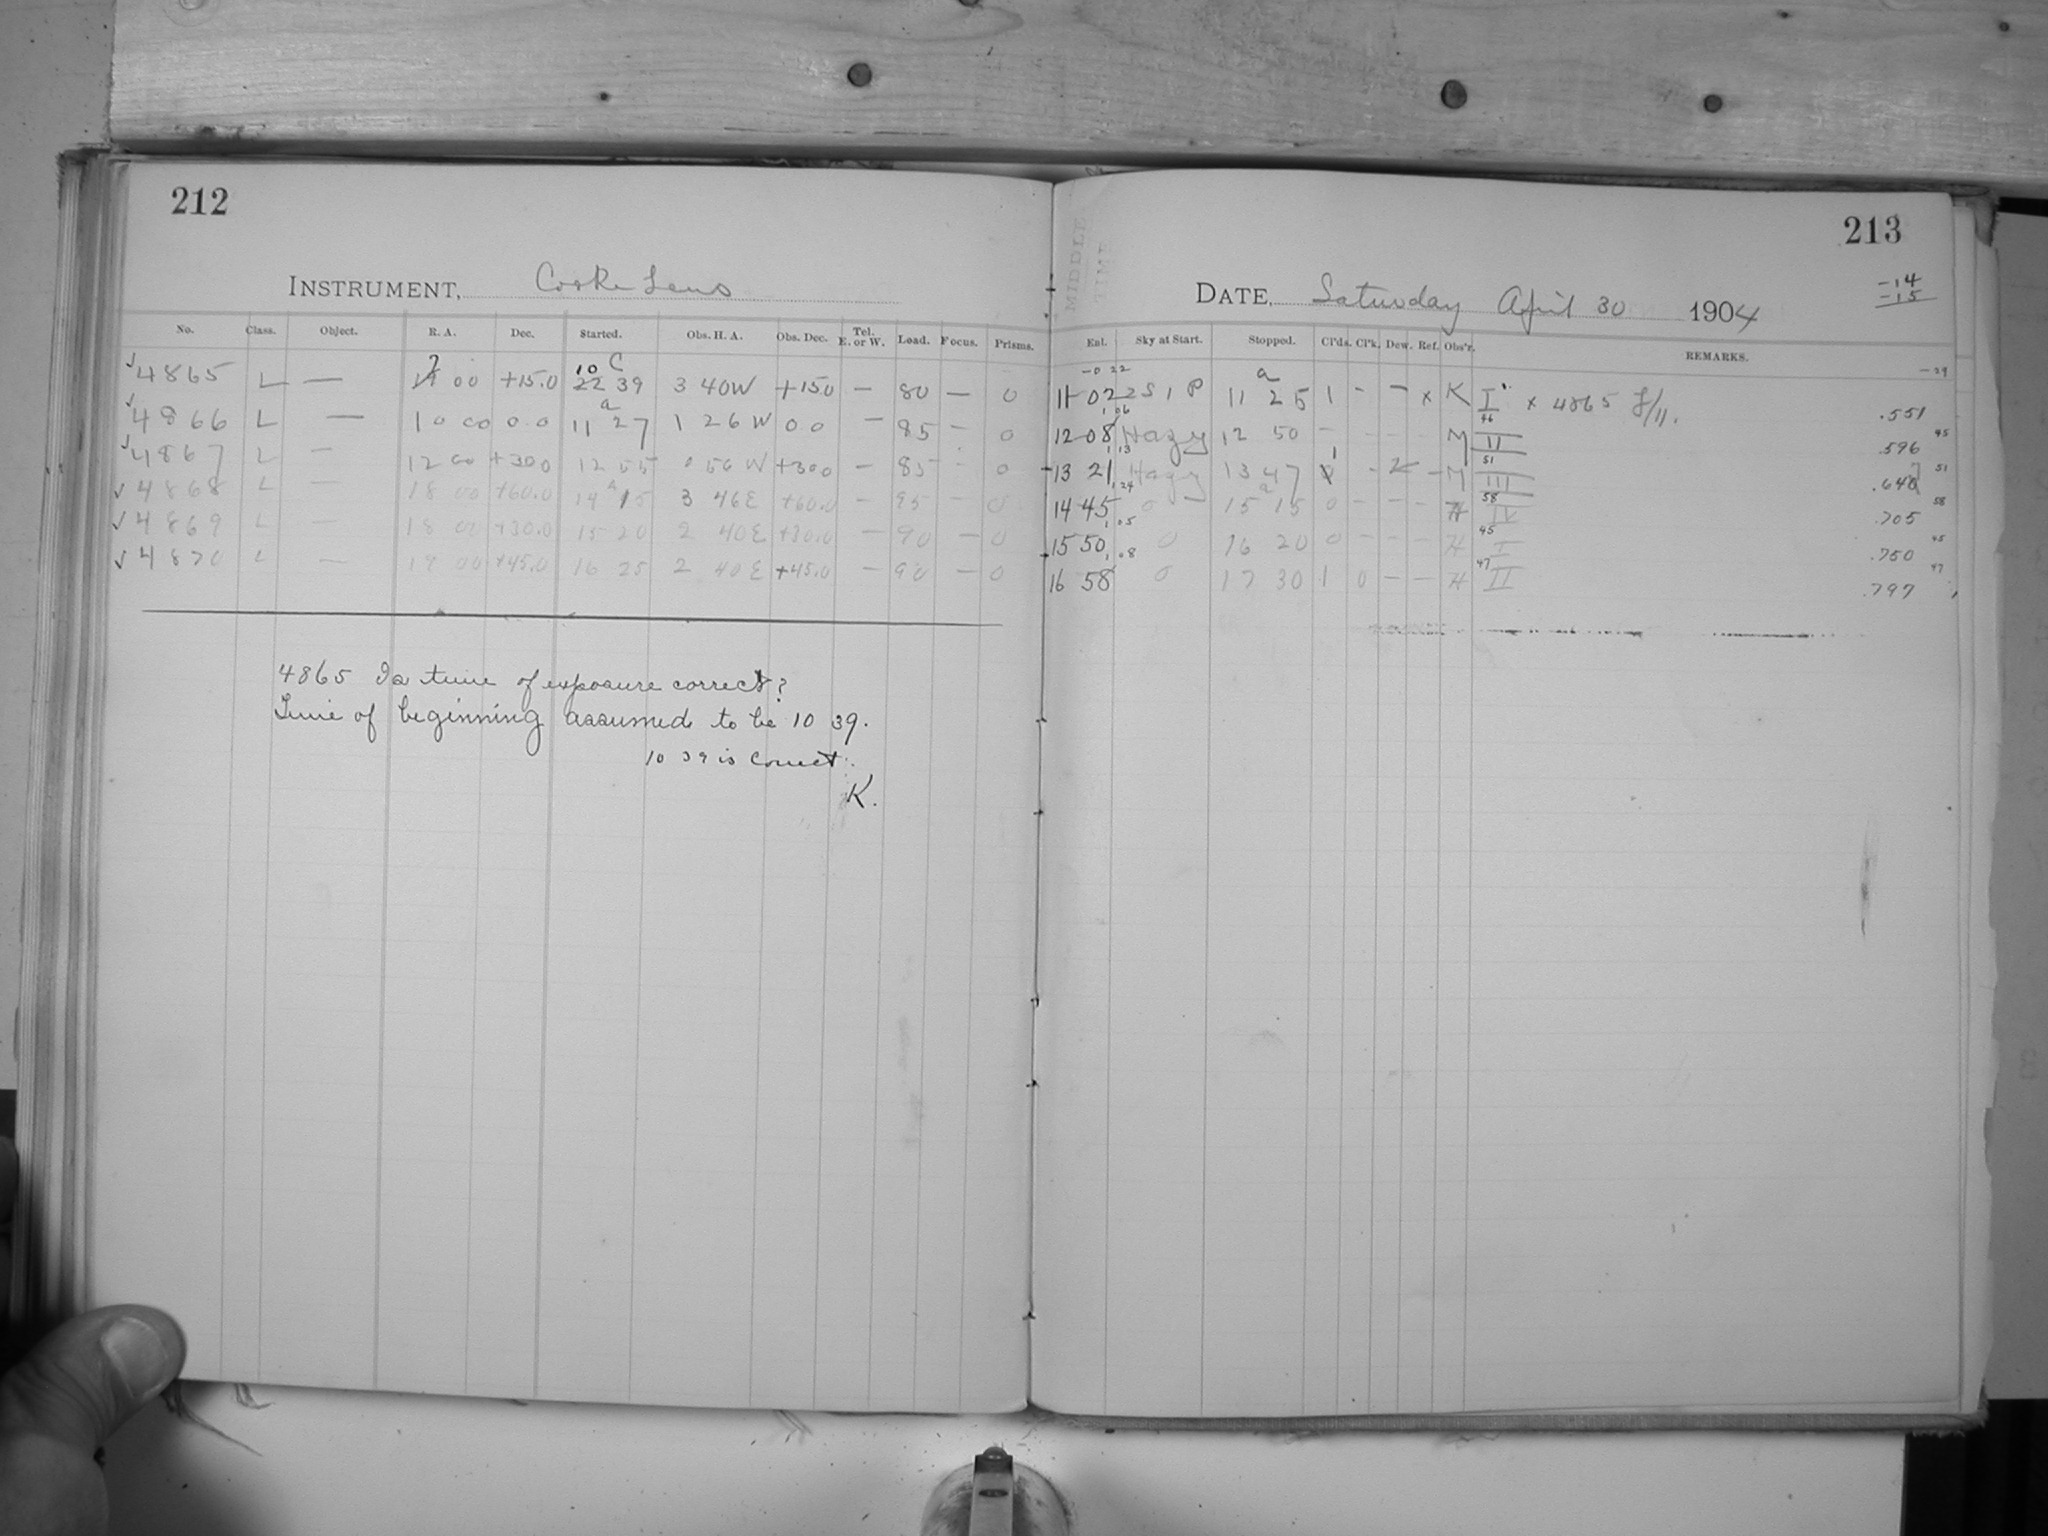 212
INSTRUMENT, Cooke Lens
No. Class. Object. R. A. Dec. Started. Obs. H. A. Obs. Dec. Tel. E. or W. Load. Focus. Prisms.
4865 L — 00 +15.0 10 22 39 3 40W +15.0 — 80 — 0
4866 L — 10 00 0.0 11 27 1 26 W 0 0 — 85 — 0
4867 L — 12 00 +30.0 12 55 0 56 W +30.0 — 85 — 0
4868 L — 18 00 +60.0 14 15 3 46E +60.0 — 95 — 0
4869 L — 18 00 +30.0 15 20 2 40E +30.0 — 90 — 0
4870 L — 19 00 +45.0 16 25 2 40E +45.0 — 90 — 0
4865 Is time of exposure correct?
Time of beginning assumed to be 10 39.
10 39 is correct.
K.
213
MIDDLE TIME
DATE, Saturday April 30 1904
-14
-15
Enl. Sky at Start. Stopped. Cl'ds. Cl'k. Dew. Ref. Obs'r. REMARKS.
-0 22 -29
11 02 2 S 1 P 11 25 1 - - x K I x 4865 f/11. .551
1 06 46 45
12 08 Hazy 12 50 - M II .596
1 13 51 51
13 21 Hazy 13 47 - M III
1 24 58 58
14 45 0 15 15 0 - - - H IV .705
1 05 45 45
15 50 0 16 20 0 - - - H I .750
1 08 47 47
16 58 0 17 30 1 0 - - H II .797